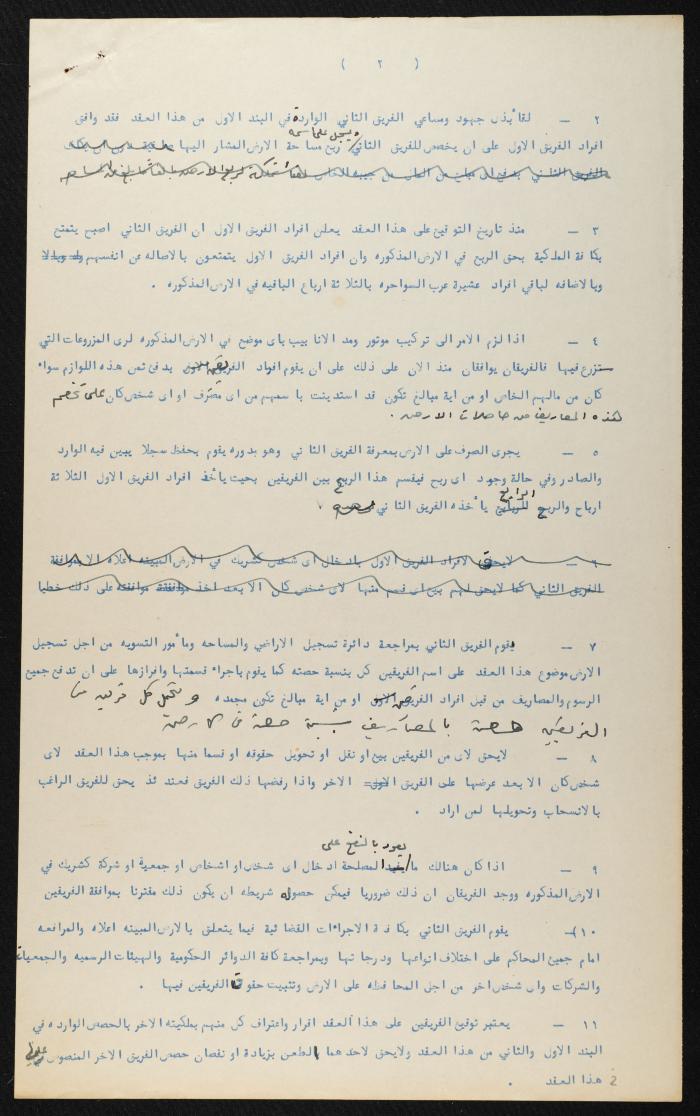 ( ٢ )
٢ — لقاء بذل جهود ومساعي الفريق الثاني الواردة في البند الاول من هذا العقد فقد وافق
ويسجل على اسمه
افراد الفريق الاول على ان يخصص للفريق الثاني ربع مساحة الارض المشار اليها
الفريق الثاني
٣ — منذ تاريخ التوقيع على هذا العقد يعلن افراد الفريق الاول ان الفريق الثاني اصبح يتمتع
بكافة الملكية بحق الربع في الارض المذكوره وان افراد الفريق الاول يتمتعون بالاصاله عن انفسهم
وبالاضافه لباقي افراد عشيرة عرب السواحره بالثلاثة ارباع الباقيه في الارض المذكوره .
٤ — اذا لزم الامر الى تركيب موتور ومد الانابيب باى موضع في الارض المذكوره لرى المزروعات التي
ستزرع فيها فالفريقان يوافقان منذ الان على ذلك على ان يقوم افراد الفريقين بدفع ثمن هذه اللوازم سواء
كان من مالهم الخاص او من اية مبالغ تكون قد استدينت باسمهم من اى مصرف او اى شخص كان على تخصم
هذه المصاريف من حاصلات الارض .
٥ — يجرى الصرف على الارض بمعرفة الفريق الثاني وهو بدوره يقوم بحفظ سجلا يبين فيه الوارد
والصادر وفي حالة وجود اى ربح فيقسم هذا الربح بين الفريقين بحيث يأخذ افراد الفريق الاول الثلاثة
الرابع
ارباح والربع يأخذه الفريق الثاني .
٦ — لايحق لافراد الفريق الاول بادخال اى شخص كشريك في الارض المبينه اعلاه الا بموافقة
الفريق الثاني كما لايحق لهم بيع اى قسم منها لاى شخص كان الا بعد اخذ موافقته على ذلك خطيا
٧ — يقوم الفريق الثاني بمراجعة دائرة تسجيل الاراضي والمساحه ومأمور التسويه من اجل تسجيل
الارض موضوع هذا العقد على اسم الفريقين كل بنسبة حصته كما يقوم باجراء قسمتها وافرازها على ان تدفع جميع
الرسوم والمصاريف من قبل افراد الفريقين او من اية مبالغ تكون مجمده ويتحمل كل فريق من
الفريقين حصته بالمصاريف بنسبة حصته في الارض
٨ — لايحق لاى من الفريقين بيع او نقل او تحويل حقوقه او قسما منها بموجب هذا العقد لاى
شخص كان الا بعد عرضها على الفريق الاخر واذا رفضها ذلك الفريق فعندئذ يحق للفريق الراغب
بالانسحاب وتحويلها لمن اراد .
يعود بالنفع على
٩ — اذا كان هنالك ما المصلحة ادخال اى شخص او اشخاص او جمعية او شركة كشريك في
الارض المذكوره ووجد الفريقان ان ذلك ضروريا فيمكن حصوله شريطه ان يكون ذلك مقترنا بموافقة الفريقين
١٠ — يقوم الفريق الثاني بكافة الاجراءات القضائية فيما يتعلق بالارض المبينه اعلاه والمرافعه
امام جميع المحاكم على اختلاف انواعها ودرجاتها وبمراجعة كافة الدوائر الحكومية والهيئات الرسميه والجمعيات
والشركات واى شخص اخر من اجل المحافظه على الارض وتثبيت حقوق الفريقين فيها .
١١ — يعتبر توقيع الفريقين على هذا العقد اقرار واعتراف كل منهم بملكيته الاخر بالحصص الوارده في
البند الاول والثاني من هذا العقد ولايحق لاحدهما الطعن بزيادة او نقصان حصص الفريق الاخر المنصوص عليها في
هذا العقد .
2